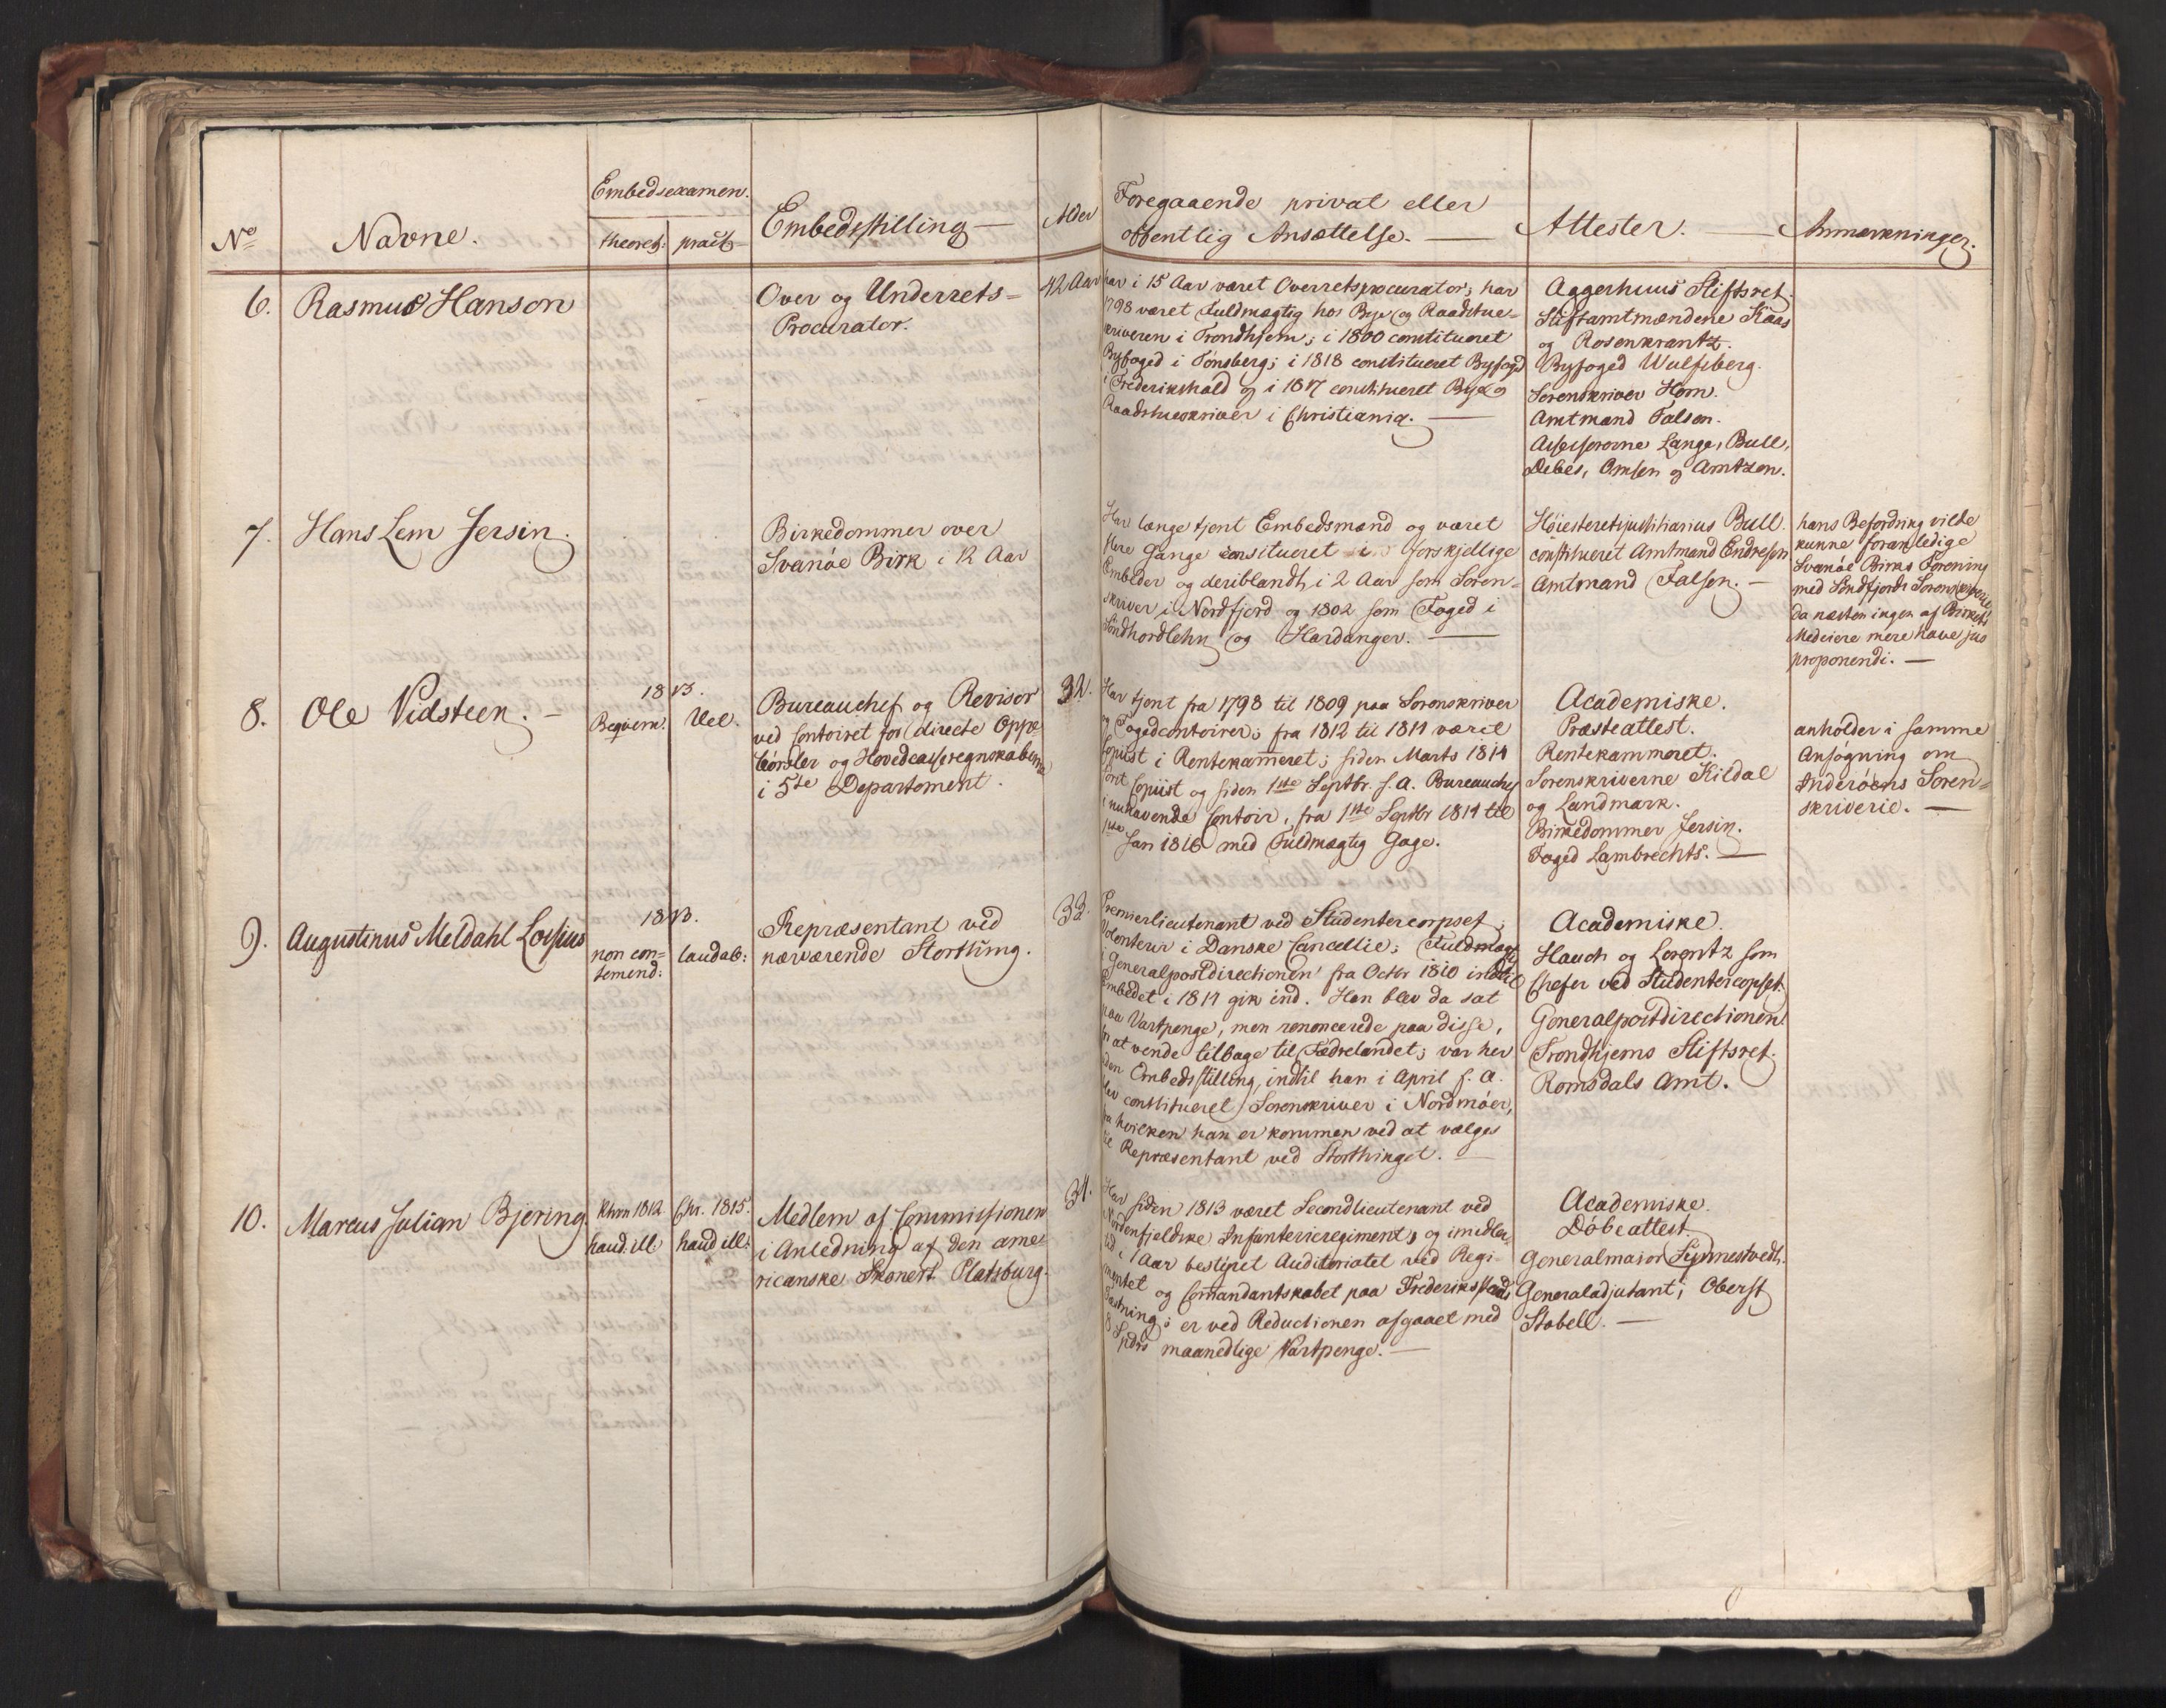 Embedsexamen.
No Navne. theoret: pract Embedsstilling Alder
Foregaaende privat eller
offentlig Ansættelse.
Attester.
Anmærkninger.
6. Rasmus Hanson
Over og Underrets=
Procurator.
42 Aar
har i 15 Aar været Overretsprocurator; har
1798 været Fuldmægtig hos Bye og Raadstue=
skriveren i Trondhjem; i 1800 constitueret
Byfoged i Tønsberg; i 1818 constitueret Byfoged
i Frederikshald og i 1817 constitueret Bye og
Raadstueskriver i Christiania.
Aggerhuus Stiftsret.
Stiftamtmændene Kaas
og Rosenkrantz.
Byfoged Wulfsberg.
Sorenskriver Horn.
Amtmand Falsen.
Assessorerne Lange, Bull,
Debes, Omsen og Arntzen.
7. Hans Lem Jersin.
Birkedommer over
Svanøe Birk i 12 Aar
Har længe tjent Embedsmænd og været
flere Gange consitueret i forskjellige
Embeder og deriblandt i 2 Aar som Soren=
skriver i Nordfjord og 1802 som Foged i
Søndhordlehn og Hardanger.
Høiesteretsjustitiarius Bull.
constitueret Amtmand Endresen
Amtmand Falsen.
hans Befordring vilde
kunne foranledige
Svanøe Birks Forening
med Søndfjords Sorenskriverie
da næsten ingen af Birkets
Medeiere mere have jus
proponendi.
8. Ole Vidsteen.
1813.
Beqvem. Vel.
Bureauchef og Revisor
ved Contoiret for directe Oppe=
børsler og Hovedcasseregnskaberne
i 5te Departement.
32.
Har tjent fra 1798 til 1809 paa Sorenskriver
og Fogedcontoirer; fra 1812 til 1814 været
Copiist i Rentekammeret; siden Marts 1814
først Copiist og siden 1ste Septbr. s. A. Bureauchef
i nuhavende Contoir, fra 1ste Septbr 1814 til
1ste Jan 1816 med Fuldmægtig Gage.
Academiske.
Præsteattest.
Rentekammeret.
Sorenskriverne Kildal
og Landmark.
Birkedommer Jersin.
Foged Lambrechts.
anholder i samme
Ansøgning om
Inderøens Soren=
skriverie.
9. Augustinus Meldahl Lossius
1813.
non con=
temend: laudab:
Repræsentant ved
nærværende Storthing.
33.
Premierlieutenant ved Studentercorpset;
Volonteur i Danske Cancellie; Fuldmægtig
i Generalpostdirectionen fra Octbr 1810 indtil
Embedet i 1814 gik ind. Han blev da sat
paa Vartpenge, men renoncerede paa disse,
for at vende tilbage til Fædrelandet; var her
uden Embedsstilling, indtil han i April s. A.
blev constitueret Sorenskriver i Nordmøer,
fra hvilken han er kommen ved at vælges
til Repræsentant ved Storthinget.
Academiske.
Hauch og Lorentz som
Chefer ved Studentercopset.
Generalpostdirectionen.
Trondhjems Stiftsret.
Romsdals Amt.
10. Marcus Julian Bjering.
Khvn 1812. Chr. 1815.
haud. ill: haud ill:
Medlem af Commissionen
i Anledning af den ame=
ricanske Skonert Platsburg.
34.
Har siden 1813 været Secondlieutenant ved
Nordenfjeldske Infanterieregiment, og imidler=
tid i 1 Aar bestyret Auditoriatet ved Regi=
mentet og Comandantskabet paa Frederiksstads
Fæstning; er ved Reductionen afgaaet med
8 Spdrs maanedlige Vartpenge.
Academiske.
Døbeattest.
Generalmajor Synnestvedt.
Generaladjutant, Oberst
Stabell.